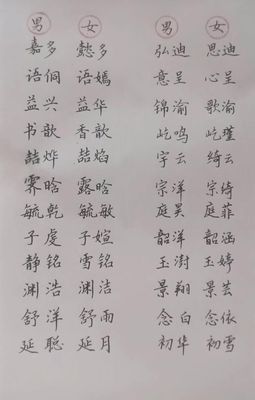 男 女 男 女
嘉多 懿多 弘迪 思迪
语侗 语嫣 意呈 心呈
益兴 益华 锦渝 歌渝
书歆 香歆 屹鸣 屹瑾
喆烨 喆焰 宇云 绮云
霁晗 露晗 宗洋 宗绮
毓乾 毓敏 庭昊 庭菲
子虔 子媗 韶洋 韶涵
静铭 雪铭 玉澍 玉婷
渊浩 渊洁 景翔 景芸
舒洋 舒雨 念白 念依
延聪 延月 初华 初雪